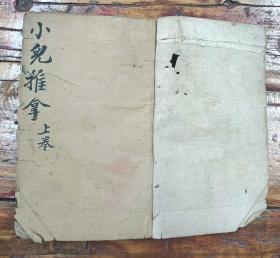 小兒推拿
上卷